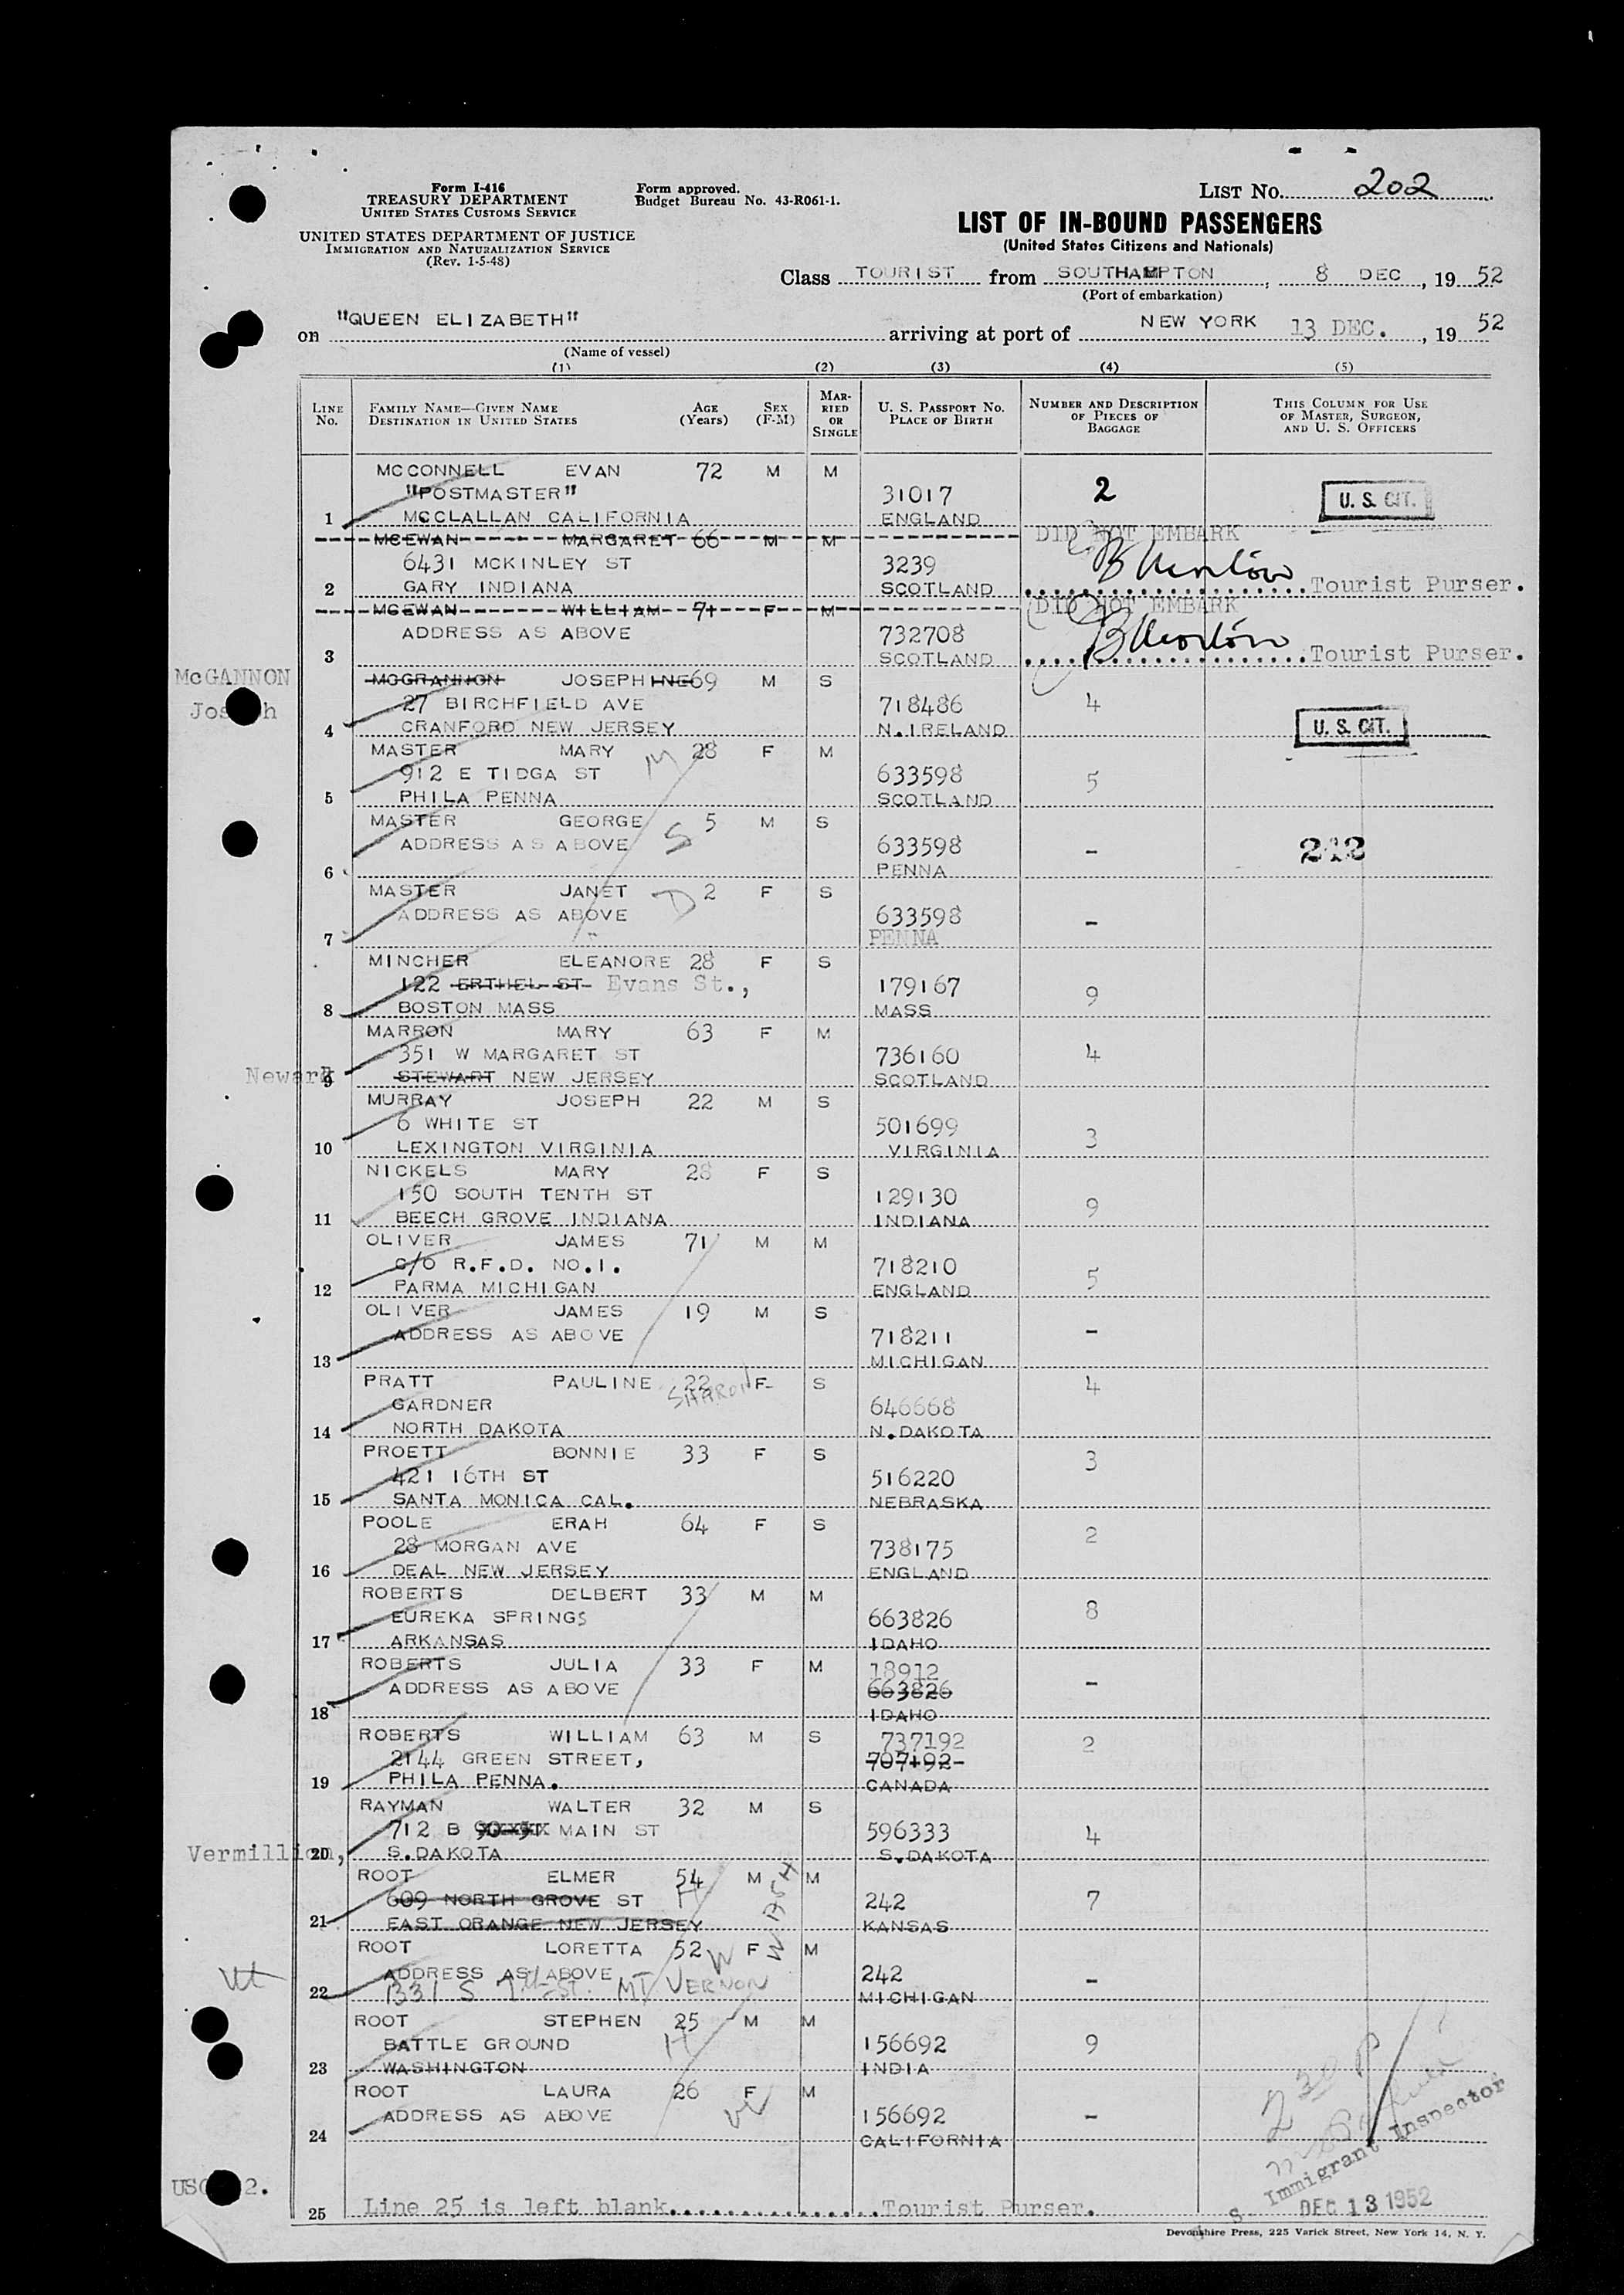 Form I-416
TREASURY DEPARTMENT
UNITED STATES CUSTOMS SERVICE
UNITED STATES DEPARTMENT OF JUSTICE
IMMIGRATION AND NATURALIZATION SERVICE
(Rev. 1-5-48)
Form approved.
Budget Bureau No. 43-R061-1.
LIST NO. 202
LIST OF IN-BOUND PASSENGERS
(United States Citizens and Nationals)
Class TOURIST from SOUTHAMPTON, 8 DEC, 1952
(Port of embarkation)
on "QUEEN ELIZABETH" arriving at port of NEW YORK 13 DEC., 1952
(Name of vessel)
(1) (2) (3) (4) (5)
LINE NO. FAMILY NAME—GIVEN NAME DESTINATION IN UNITED STATES AGE (Years) SEX (F-M) MARRIED OR SINGLE U. S. PASSPORT NO. PLACE OF BIRTH NUMBER AND DESCRIPTION OF PIECES OF BAGGAGE THIS COLUMN FOR USE OF MASTER, SURGEON, AND U. S. OFFICERS
MCCONNELL EVAN 72 M M
"POSTMASTER" 31017 2 U. S. CIT.
1 MCCLALLAN CALIFORNIA ENGLAND
MCEWAN MARGARET 66 M M DID NOT EMBARK
6431 MCKINLEY ST 3239
2 GARY INDIANA SCOTLAND Tourist Purser.
MCEWAN WILLIAM 71 F M DID NOT EMBARK
ADDRESS AS ABOVE 732708
3 SCOTLAND Tourist Purser.
McGANNON MCGRANNON JOSEPHINE 69 M S
Joseph 27 BIRCHFIELD AVE 718486 4
4 CRANFORD NEW JERSEY N.IRELAND U. S. CIT.
MASTER MARY M 28 F M
912 E TIDGA ST 633598 5
5 PHILA PENNA SCOTLAND
MASTER GEORGE S 5 M S
ADDRESS AS ABOVE 633598 - 242
6 PENNA
MASTER JANET D 2 F S
ADDRESS AS ABOVE 633598 -
7 PENNA
MINCHER ELEANORE 28 F S
122 ERTHEL ST Evans St., 179167 9
8 BOSTON MASS MASS
MARRON MARY 63 F M
351 W MARGARET ST 736160 4
Newark 9 STEWART NEW JERSEY SCOTLAND
MURRAY JOSEPH 22 M S
6 WHITE ST 501699 3
10 LEXINGTON VIRGINIA VIRGINIA
NICKELS MARY 28 F S
150 SOUTH TENTH ST 129130 9
11 BEECH GROVE INDIANA INDIANA
OLIVER JAMES 71 M M
C/O R.F.D. NO.1. 718210 5
12 PARMA MICHIGAN ENGLAND
OLIVER JAMES 19 M S
ADDRESS AS ABOVE 718211 -
13 MICHIGAN
PRATT PAULINE 22 SHARON F- S 4
GARDNER 646668
14 NORTH DAKOTA N.DAKOTA
PROETT BONNIE 33 F S 3
421 16TH ST 516220
15 SANTA MONICA CAL. NEBRASKA
POOLE ERAH 64 F S 2
28 MORGAN AVE 738175
16 DEAL NEW JERSEY ENGLAND
ROBERTS DELBERT 33 M M 8
EUREKA SPRINGS 663826
17 ARKANSAS IDAHO
ROBERTS JULIA 33 F M 18912 -
ADDRESS AS ABOVE 663826
18 IDAHO
ROBERTS WILLIAM 63 M S 737192 2
2144 GREEN STREET, 707192-
19 PHILA PENNA. CANADA
RAYMAN WALTER 32 M S
712 B MAIN ST 596333 4
Vermillion, 20 S.DAKOTA S.DAKOTA
ROOT ELMER 54 H M M
609 NORTH GROVE ST 242 7
21 EAST ORANGE NEW JERSEY KANSAS
ROOT LORETTA 52 W F M WASH
ADDRESS AS ABOVE 242 -
22 1331 S 7th ST. MT VERNON MICHIGAN
ROOT STEPHEN 25 H M M
BATTLE GROUND 156692 9
23 WASHINGTON INDIA
ROOT LAURA 26 F W M
ADDRESS AS ABOVE 156692 -
24 CALIFORNIA
230 P
U S Immigrant Inspector
25 Line 25 is left blank. Tourist Purser. DEC 13 1952
Devonshire Press, 225 Varick Street, New York 14, N. Y.